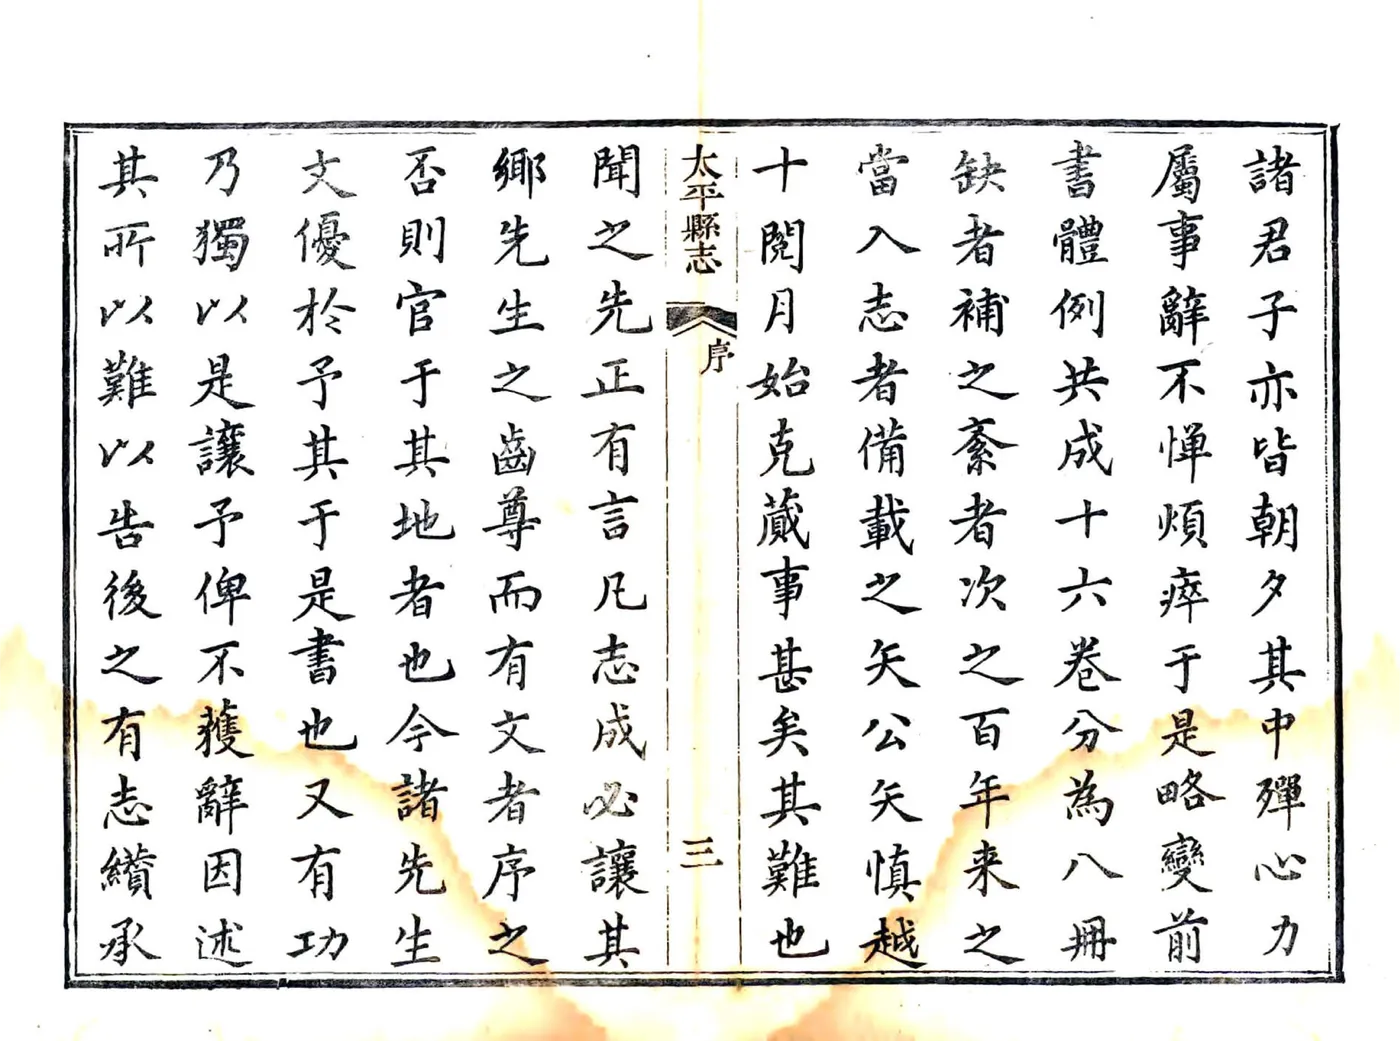 諸君子亦皆朝夕其中殫心力
屬事辭不憚煩瘁于是略變前
書體例共成十六卷分為八冊
缺者補之紊者次之百年来之
當入志者備載之矢公矢慎越
十閱月始克蕆事甚矣其難也
太平縣志
序
三
聞之先正有言凡志成必讓其
鄉先生之齒尊而有文者序之
否則官于其地者也今諸先生
文優於予其于是書也又有功
乃獨以是讓予俾不獲辭因述
其所以難以告後之有志纘承